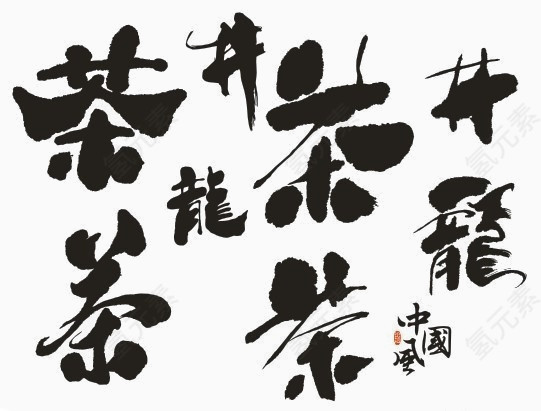 茶 井 茶 井
龍 龍
茶 茶
中國風
氢元素